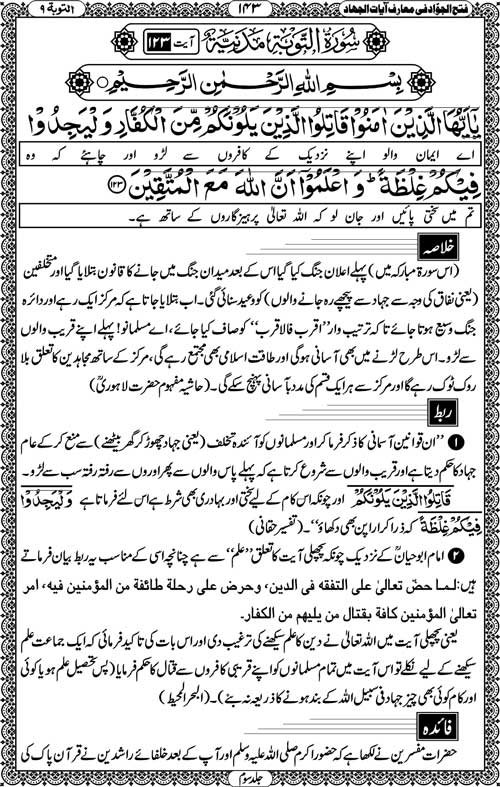 فتح الجوّاد فی معارف آیات الجہاد ۱۴۳ التوبة ۹
سُوْرَةُ التَّوْبَةِ مَدَنِيَّةٌ آیت ۱۲۳
بِسْمِ اللهِ الرَّحْمٰنِ الرَّحِيْمِ
يٰٓاَيُّهَا الَّذِيْنَ اٰمَنُوْا قَاتِلُوا الَّذِيْنَ يَلُوْنَكُمْ مِّنَ الْكُفَّارِ وَلْيَجِدُوْا
اے ایمان والو اپنے نزدیک کے کافروں سے لڑو اور چاہئے کہ وہ
فِيْكُمْ غِلْظَةً ؕ وَاعْلَمُوْٓا اَنَّ اللهَ مَعَ الْمُتَّقِيْنَ ۝۱۲۳
تم میں سختی پائیں اور جان لو کہ اللہ تعالیٰ پرہیزگاروں کے ساتھ ہے۔
خلاصہ
(اس سورۃ مبارکہ میں) پہلے اعلان جنگ کیا گیا اس کے بعد میدان جنگ میں جانے کا قانون بتلایا گیا اور متخلفین
(یعنی نفاق کی وجہ سے جہاد سے پیچھے رہ جانے والوں) کو وعید سنائی گئی۔ اب بتلایا جاتا ہے کہ مرکز ایک رہے اور دائرہ
جنگ وسیع ہوتا جائے تاکہ ترتیب وار ”اقرب فالاقرب“ کو صاف کیا جائے، اے مسلمانو! پہلے اپنے قریب والوں
سے لڑو۔ اس طرح لڑنے میں بھی آسانی ہوگی اور طاقت اسلامی بھی مجتمع رہے گی، مرکز کے ساتھ مجاہدین کا تعلق بلا
روک ٹوک رہے گا اور مرکز سے ہر ایک قسم کی مدد بآسانی پہنچ سکے گی۔ (حاشیہ مفہوم حضرت لاہوریؒ)
ربط
۱ ”ان قوانین آسمانی کا ذکر فرما کر اور مسلمانوں کو آئندہ تخلف (یعنی جہاد چھوڑ کر گھر بیٹھنے) سے منع کر کے عام
جہاد کا حکم دیتا ہے اور قریب والوں سے شروع کرتا ہے کہ پہلے پاس والوں سے پھر اوروں سے رفتہ رفتہ سب سے لڑو۔
قَاتِلُوا الَّذِيْنَ يَلُوْنَكُمْ اور چونکہ اس کام کے لیے سختی اور بہادری بھی شرط ہے اس لئے فرماتا ہے وَلْيَجِدُوْا
فِيْكُمْ غِلْظَةً کہ ذرا کرارا پن بھی دکھاؤ“۔ (تفسیر حقانی)
۲ امام ابو حیانؒ کے نزدیک چونکہ پچھلی آیت کا تعلق ”علم“ سے ہے چنانچہ اسی کے مناسب یہ ربط بیان فرماتے
ہیں: لما حضّ تعالیٰ علی التفقه فی الدین، وحرض علی رحلة طائفة من المؤمنین فیه، امر
تعالیٰ المؤمنین كافة بقتال من یلیهم من الكفار.
یعنی پچھلی آیت میں اللہ تعالیٰ نے دین کا علم سیکھنے کی ترغیب دی اور اس بات کی تاکید فرمائی کہ ایک جماعت علم
سیکھنے کے لیے نکلے تو اس آیت میں تمام مسلمانوں کو اپنے قریبی کافروں سے قتال کا حکم فرمایا (پس تحصیل علم ہو یا کوئی
اور کام کوئی بھی چیز جہاد فی سبیل اللہ کے بند ہونے کا ذریعہ نہ بنے)۔ (البحر المحیط)
فائدہ
حضرات مفسرین نے لکھا ہے کہ حضور اکرم صلی اللہ علیہ وسلم اور آپ کے بعد خلفائے راشدین نے قرآن پاک کی
جلد سوم